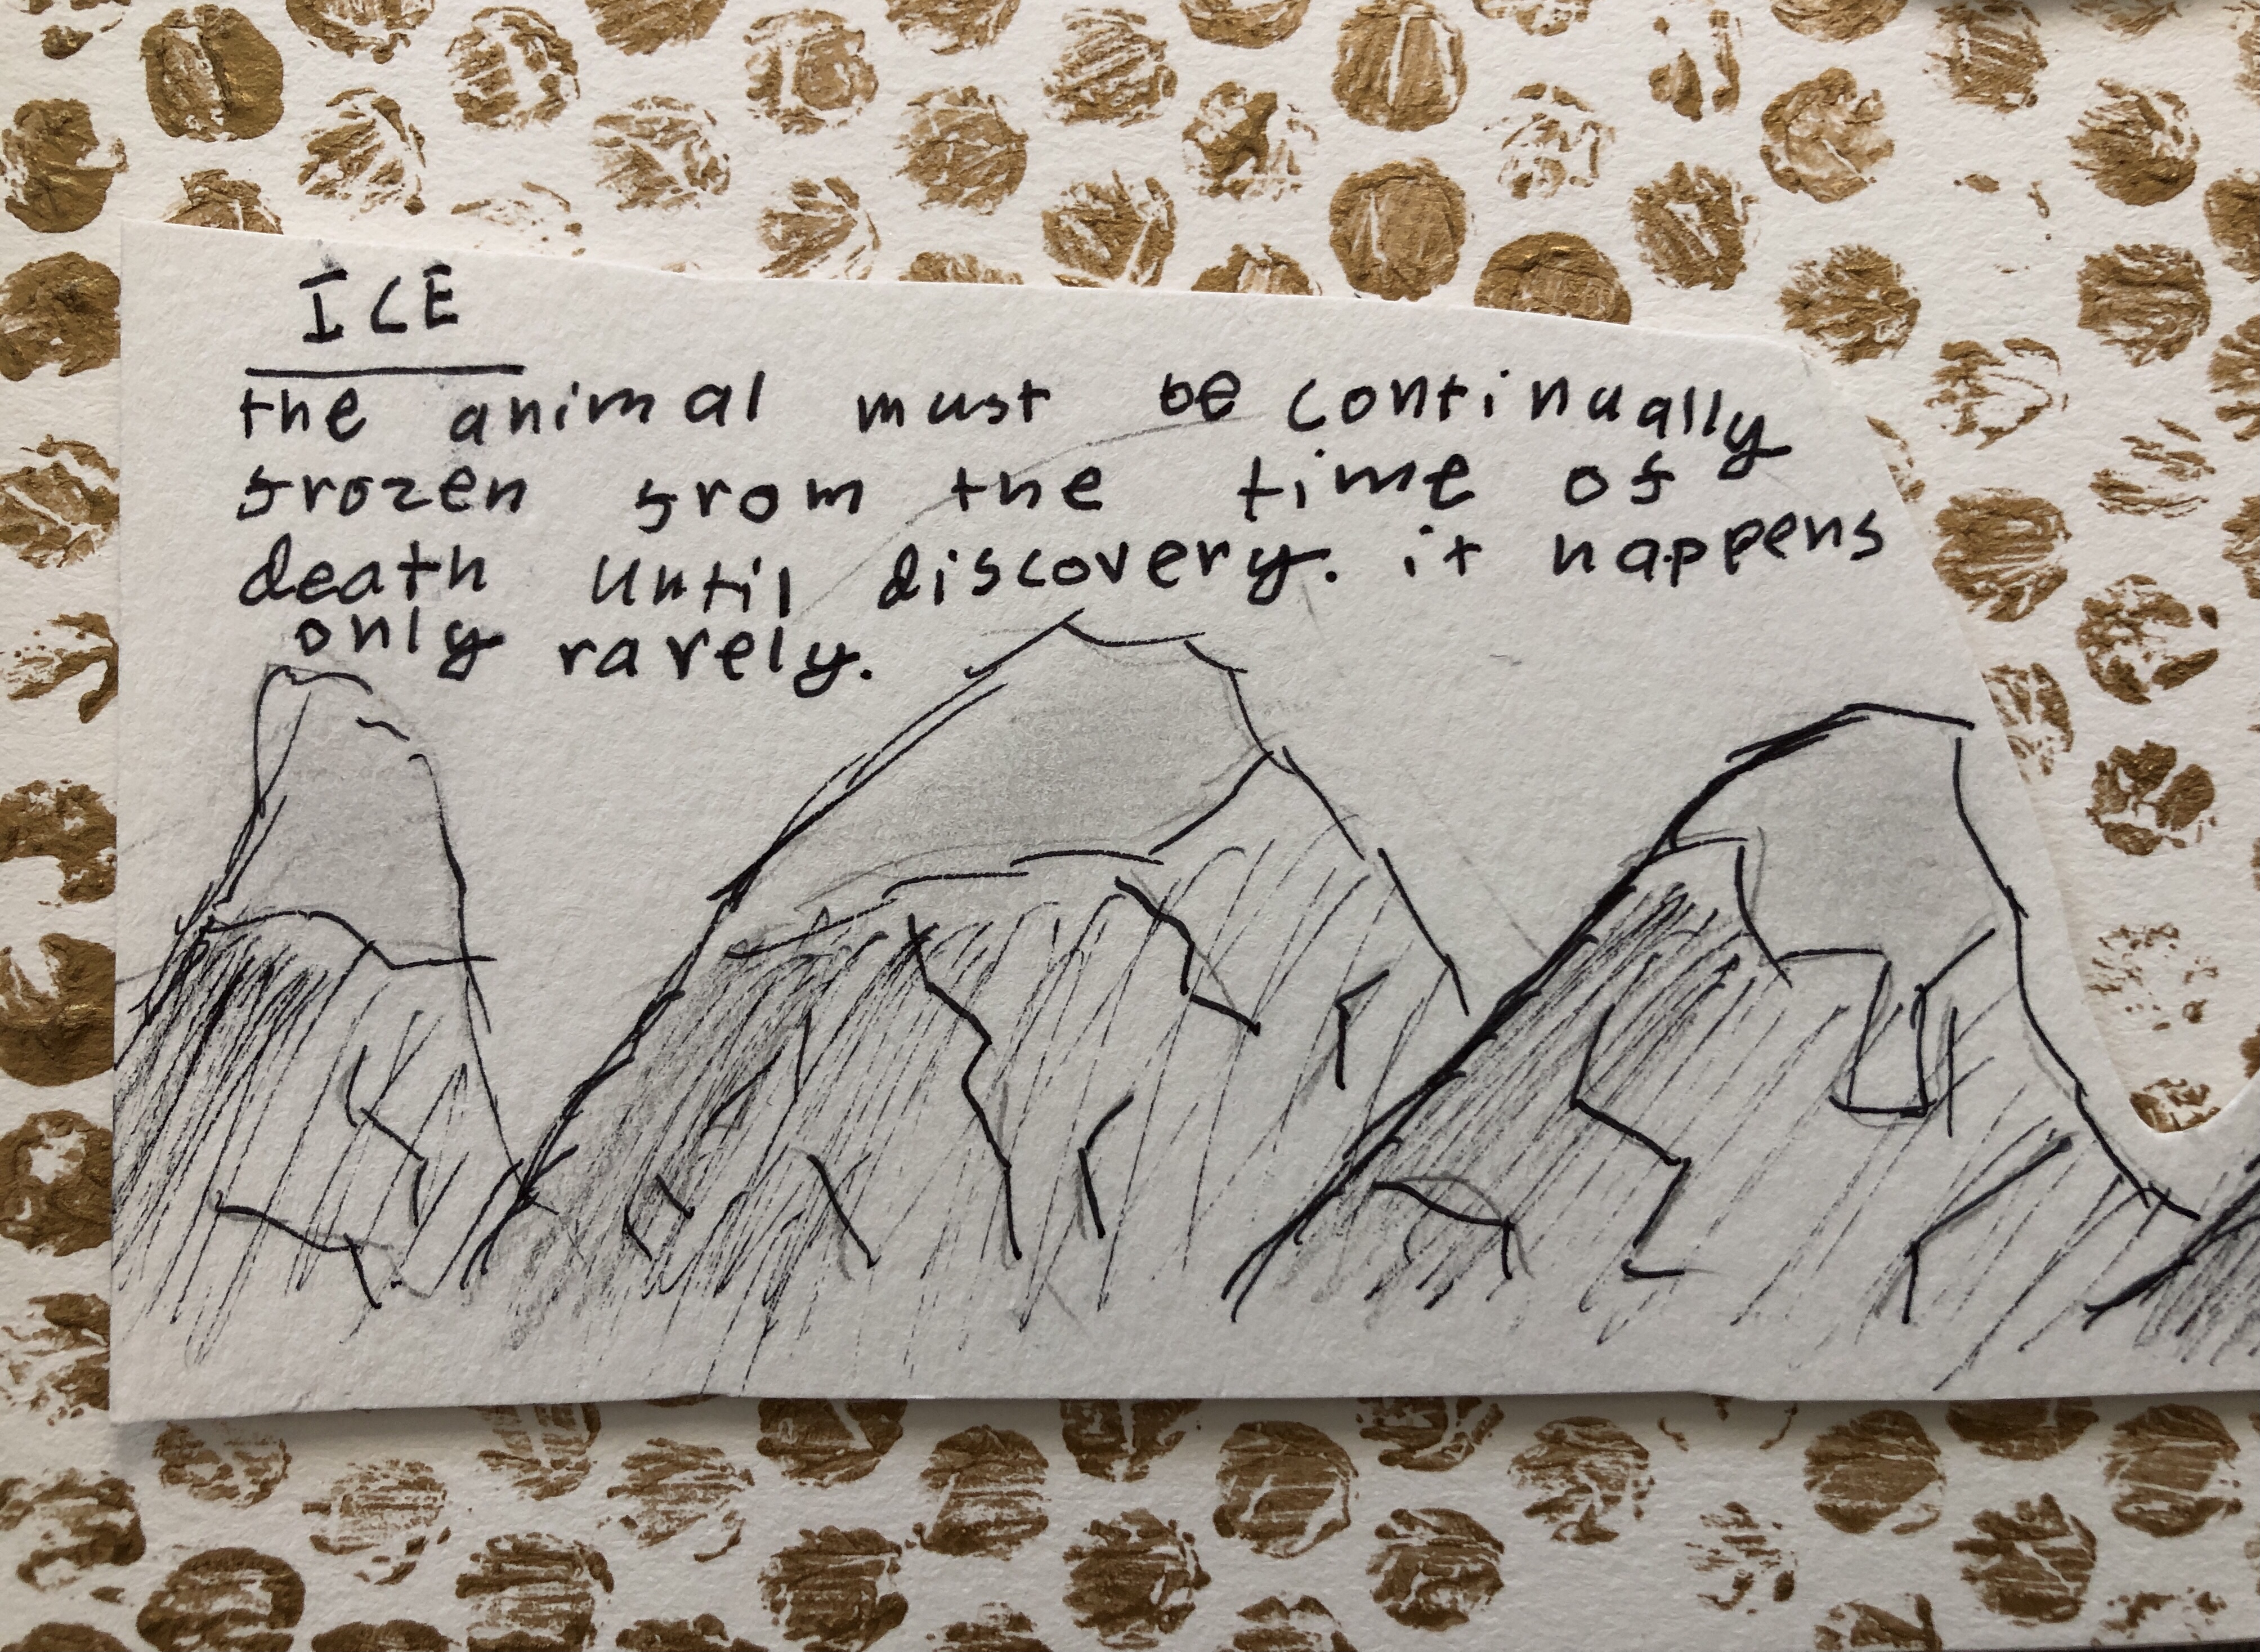 ICE
the animal must be continually
frozen from the time of
death until discovery. it happens
only rarely.